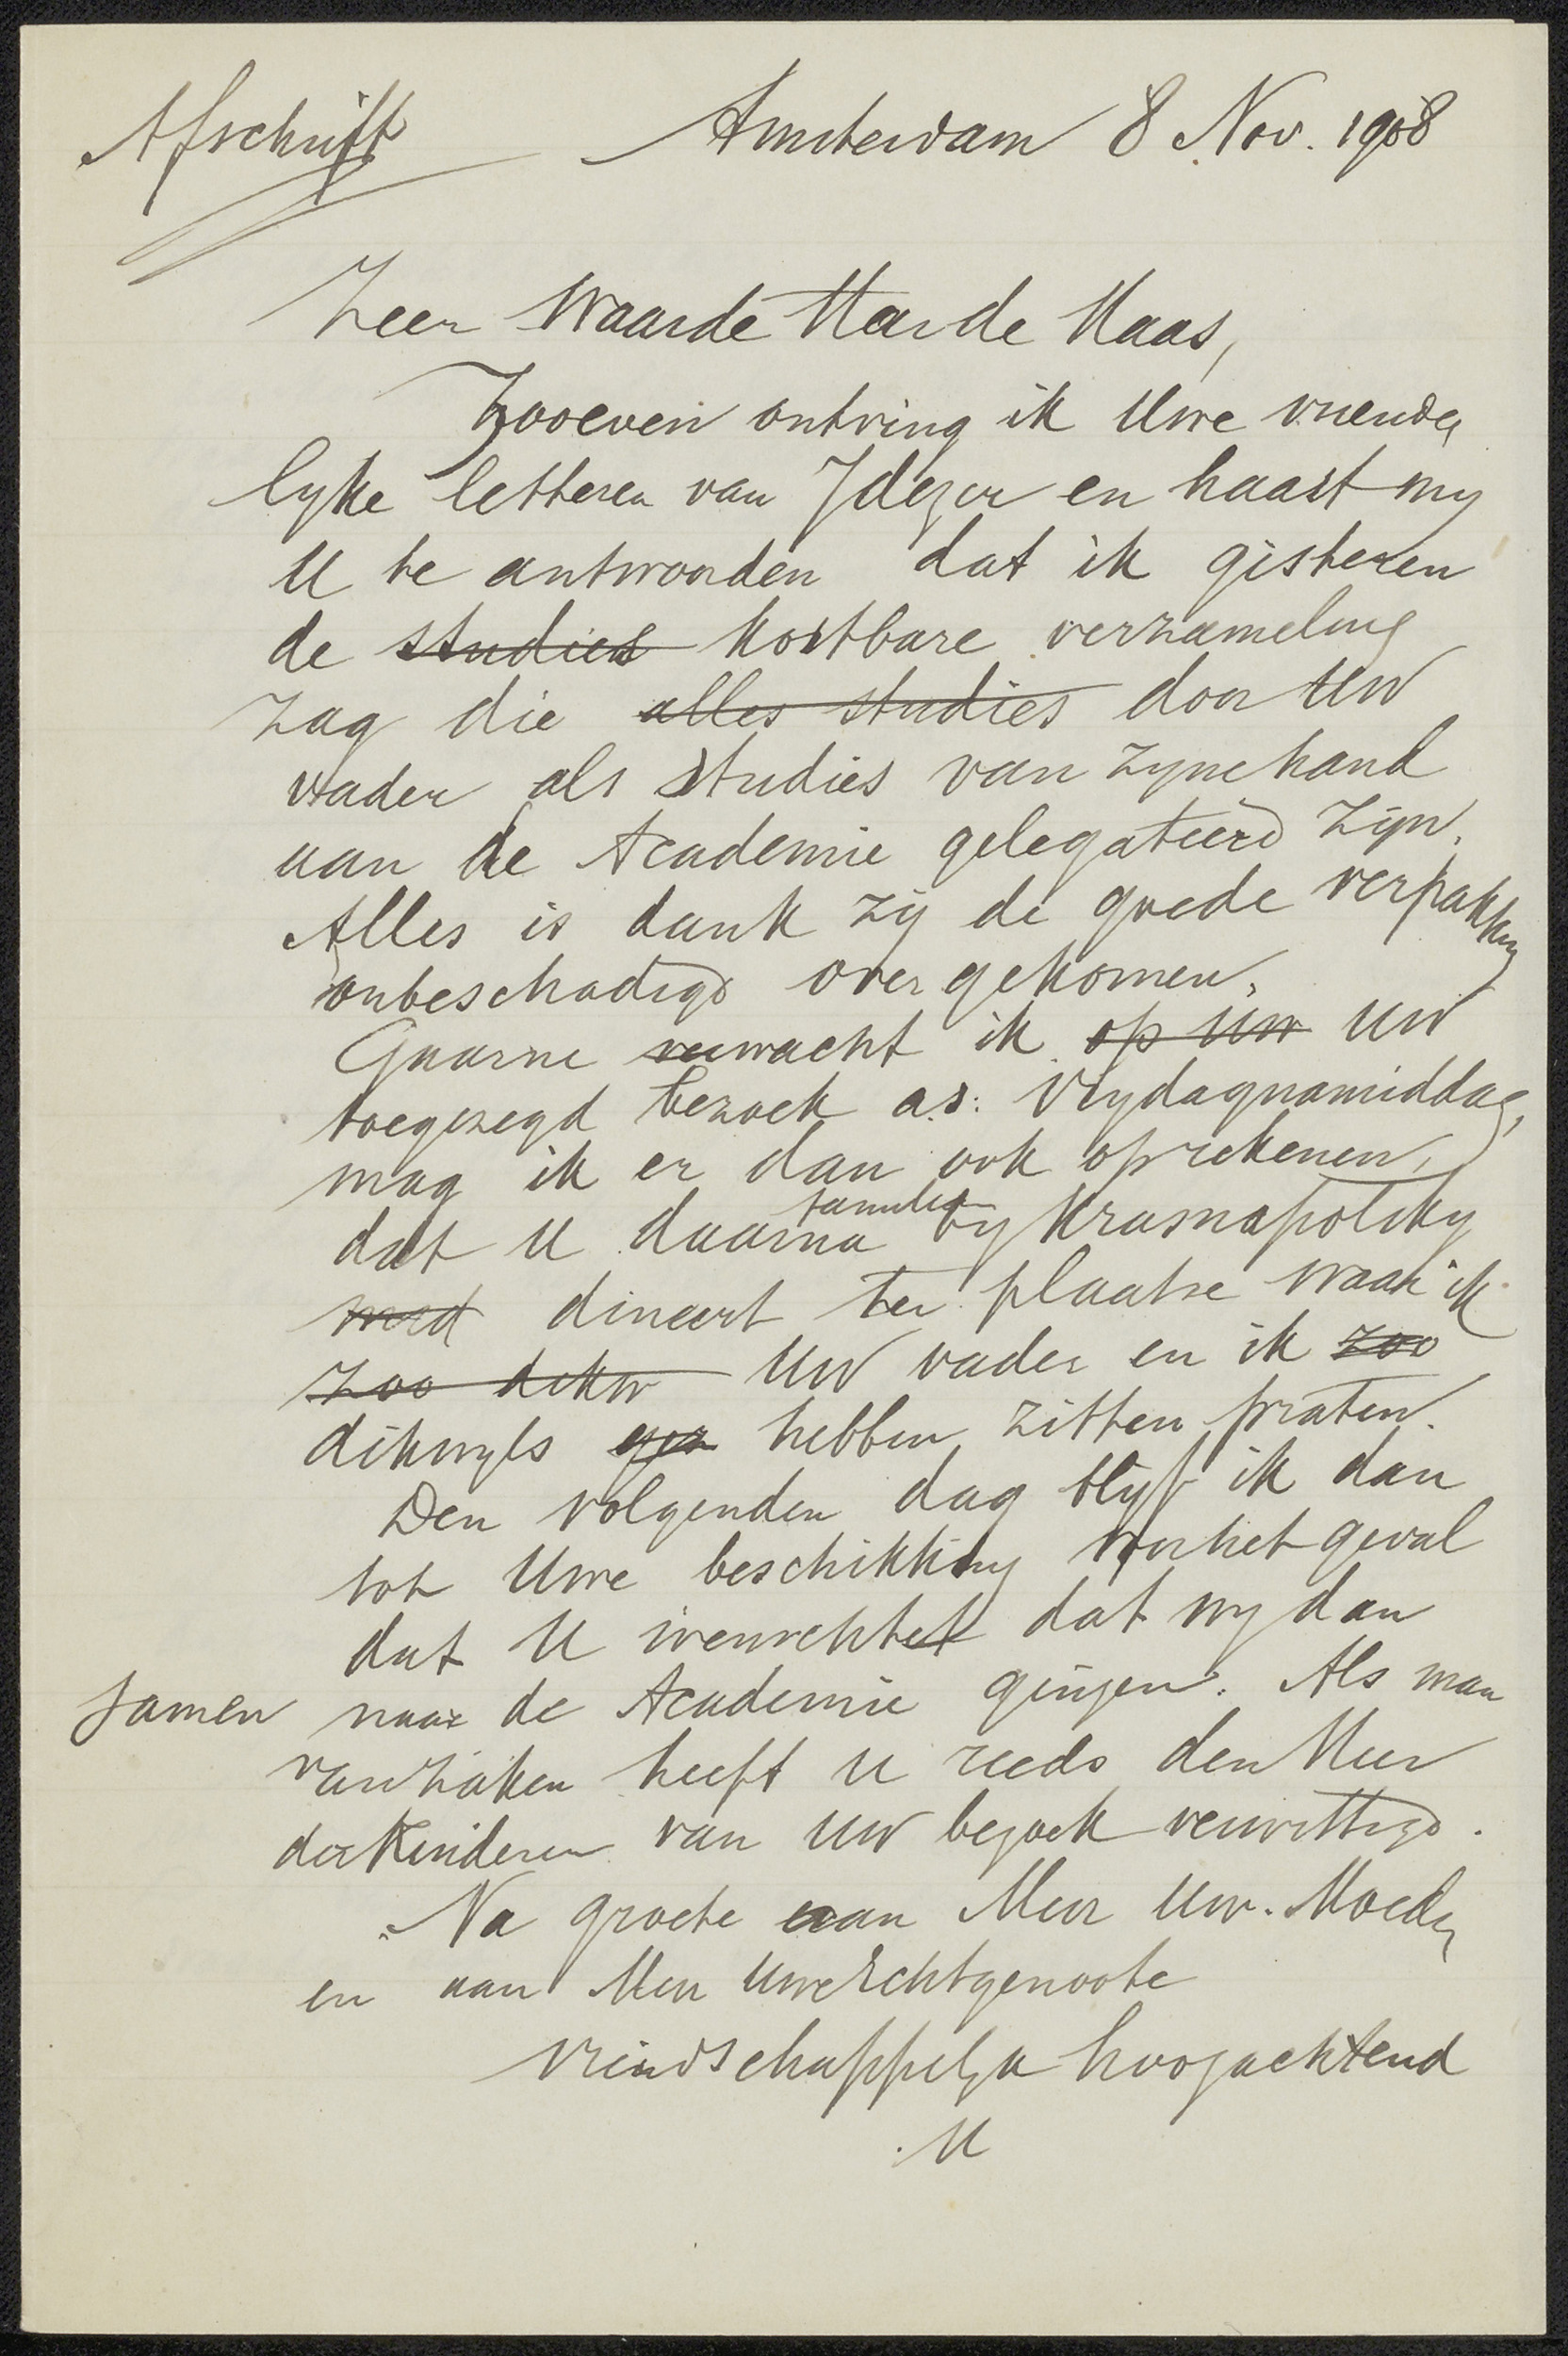 Afschrift Amsterdam 8 Nov. 1908
Zeer Waarde Heer de Haas,
Zooeven ontving ik Uwe vriende
lyke letteren van 7 dezer en haast my
U te antwoorden dat ik gisteren
de studies kostbare verzameling
zag die alles studies door Uw
vader als studies van zyne hand
aan de Academie gelegateerd zijn.
Alles is dank zij de goede verpakking
onbeschadigd overgekomen.
Gaarne verwacht ik op Uw Uw
toegezegd bezoek a.s. Vrydagnamiddag,
mag ik er dan ook oprekenen,
dat U daarna by Krasnapolsky
dineert ter plaatse waar ik
zoo Uw vader en ik zoo
dikwyls hebben zitten praten.
Den volgenden dag blyf ik dan
tot Uwe beschikking voor het geval
dat U wenschtet dat wy dan
samen naar de Academie gingen. Als man
van zaken heeft U reeds den Heer
der Kinderen van Uw bezoek verwittigd.
Na groete aan Mevr Uw. Moeder
en aan Mevr Uwe Echtgenoote
vriendschappelyk hoogachtend